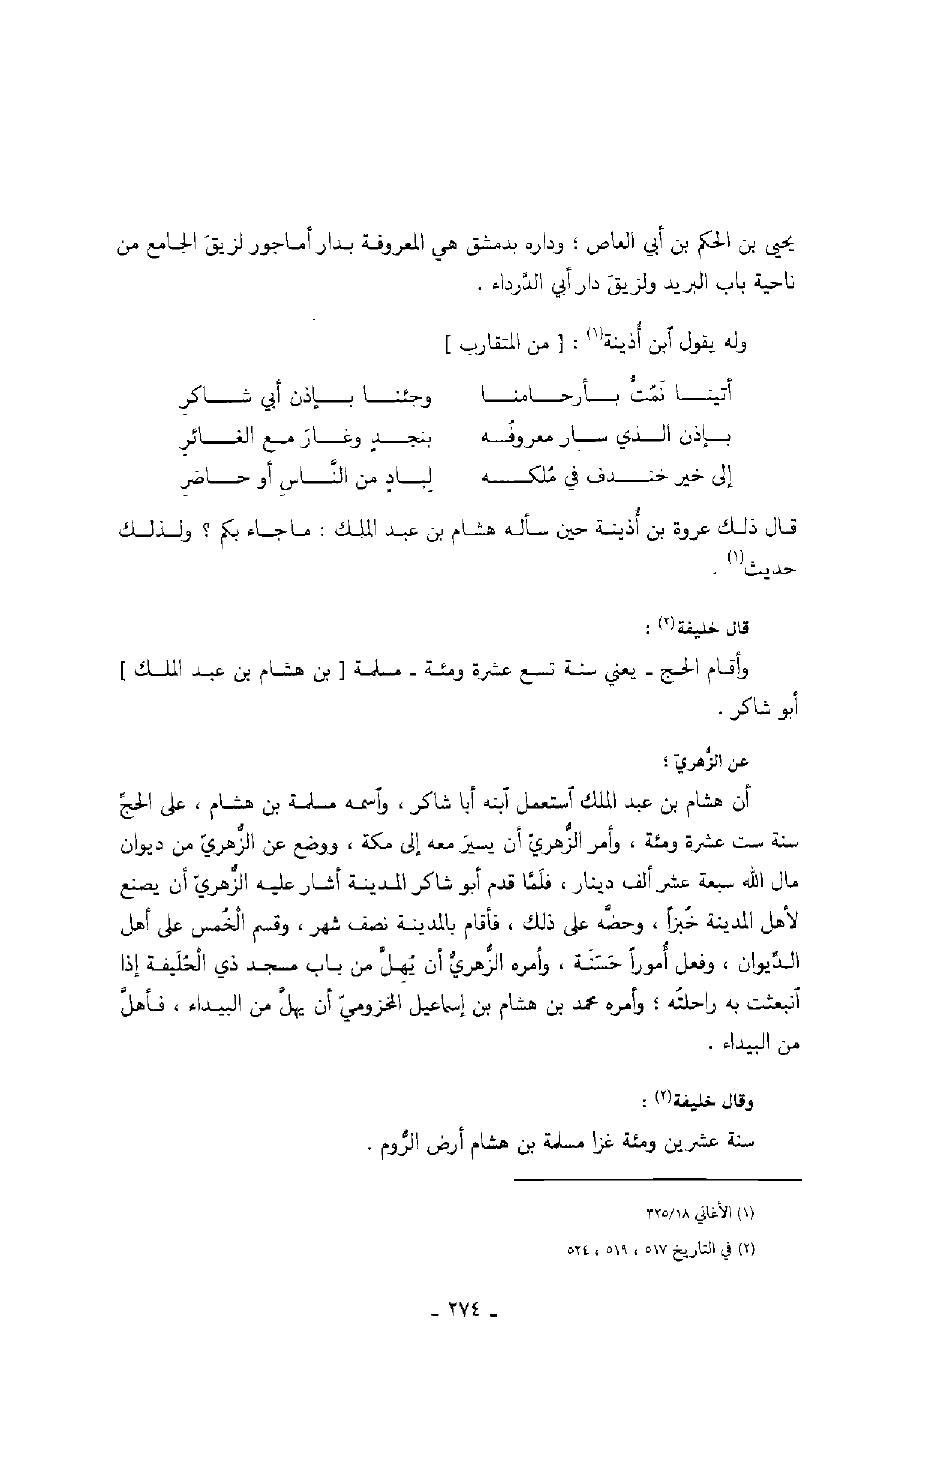 يحيى بن الحكم بن أبي العاص ؛ وداره بدمشق هي المعروفة بدار أماجور لزيقَ الجامع من
ناحية باب البريد ولزيقَ دار أبي الدَّرداء .
وله يقول ٱبن أُذينة(١) : [ من المتقارب ]
أتينا نَمُتُّ بأرحامنا وجئنا بإذن أبي شاكرِ
بإذن الذي سار معروفُه بنجدٍ وغارَ مع الغائرِ
إلى خير خندف في مُلكه لبادٍ من النَّاس أو حاضرِ
قال ذلك عروة بن أُذينة حين سأله هشام بن عبد الملك : ماجاء بكم ؟ ولذلك
حديث(١) .
قال خليفة(٢) :
وأقام الحج ـ يعني سنة تسع عشرة ومئة ـ مسلمة [ بن هشام بن عبد الملك ]
أبو شاكر .
عن الزُّهريّ ؛
أن هشام بن عبد الملك ٱستعمل ٱبنه أبا شاكر ، وٱسمه مسلمة بن هشام ، على الحجّ
سنة ست عشرة ومئة ، وأمر الزُّهريّ أن يسيرَ معه إلى مكة ، ووضع عن الزُّهريّ من ديوان
مال الله سبعة عشر ألف دينار ، فلمَّا قدم أبو شاكر المدينة أشار عليه الزُّهريّ أن يصنع
لأهل المدينة خُبزاً ، وحضَّه على ذلك ، فأقام بالمدينة نصف شهر ، وقسم الْخُمس على أهل
الدِّيوان ، وفعل أُموراً حَسَنَة ، وأمره الزُّهريُّ أن يُهِلَّ من باب مسجد ذي الْحُلَيفة إذا
ٱنبعثت به راحلتُه ؛ وأمره محمد بن هشام بن إسماعيل المخزوميّ أن يهلَّ من البيداء ، فأهلَّ
من البيداء .
وقال خليفة(٢) :
سنة عشرين ومئة غزا مسلمة بن هشام أرض الرُّوم .
(١) الأغاني ٣٢٥/١٨
(٢) في التاريخ ٥١٧ ، ٥١٩ ، ٥٢٤
ـ ٢٧٤ ـ